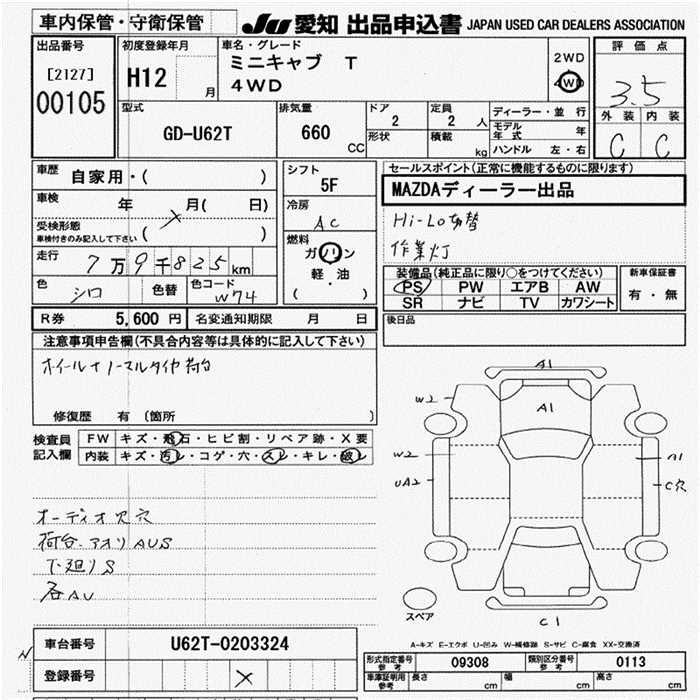 車内保管・守衛保管
JU 愛知 出品申込書 JAPAN USED CAR DEALERS ASSOCIATION
出品番号
[2127]
00105
初度登録年月
H12
月
車名・グレード
ミニキャブ T
4WD
2WD
4WD
評価点
3.5
外装 内装
C C
型式
GD-U62T
排気量
660
CC
ドア
2
形状
定員
2 人
積載
kg
ディーラー・並行
モデル年式 年
ハンドル 左・右
車歴
自家用・( )
車検
年 月( 日)
受検形態
車検付きのみ記入して下さい ( )
走行
7万9千825km
色
シロ
色替
色コード
W74
シフト
5F
冷房
AC
燃料
ガソリン
軽・油
( )
セールスポイント(正常に機能するものに限ります)
MAZDAディーラー出品
Hi-Lo切替
作業灯
装備品(純正品に限り○をつけてください)
PS PW エアB AW
SR ナビ TV カワシート
新車保証書
有・無
R券 5,600 円 名変通知期限 月 日
後日品
注意事項申告欄(不具合内容等は具体的に記入して下さい)
ホイール+ノーマルタイヤ荷台
修復歴 有 〔箇所 〕
検査員記入欄
FW キズ・飛石・ヒビ割・リペア跡・X要
内装 キズ・汚レ・コゲ・穴・スレ・キレ・破レ
オーディオ欠穴
荷台.アオリAUS
下廻りS
各AU
A1
W2
A1
W2
UA2
A1
C穴
スペア
C1
A-キズ E-エクボ U-凹み W-補修跡 S-サビ C-腐食 XX-交換済
車台番号 U62T-0203324
登録番号
形式指定番号 参考 09308 類別区分番号 参考 0113
車庫証明用 参考 長さ cm 幅 cm 高さ cm